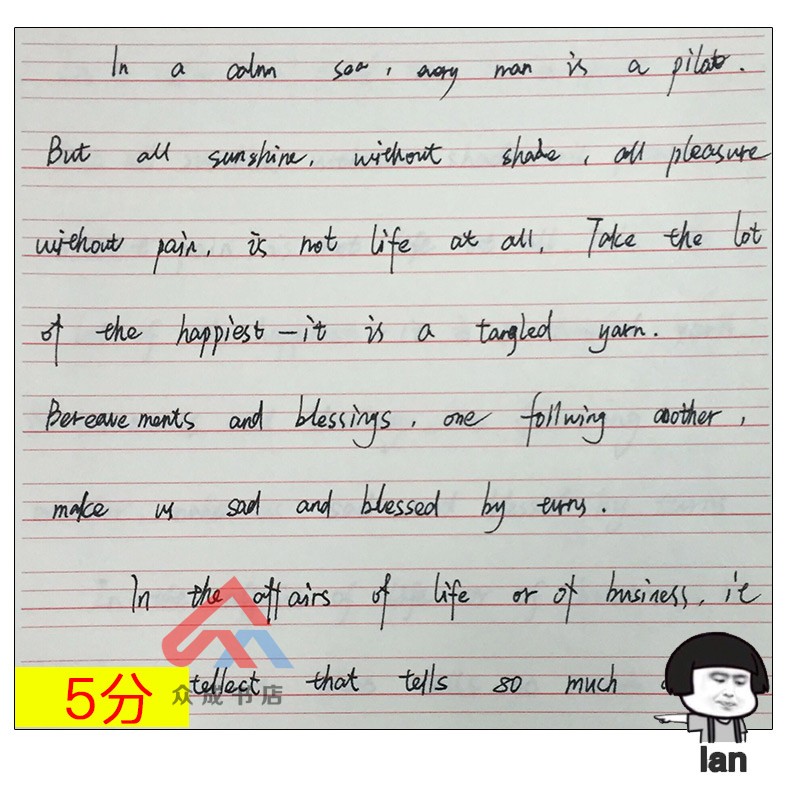 In a calm sea, every man is a pilot.
But all sunshine, without shade, all pleasure
without pain, is not life at all, Take the lot
of the happiest—it is a tangled yarn.
Bereavements and blessings, one follwing another,
make us sad and blessed by turns.
In the affairs of life or of business, it
tellect that tells so much
5分
众成书店
lan